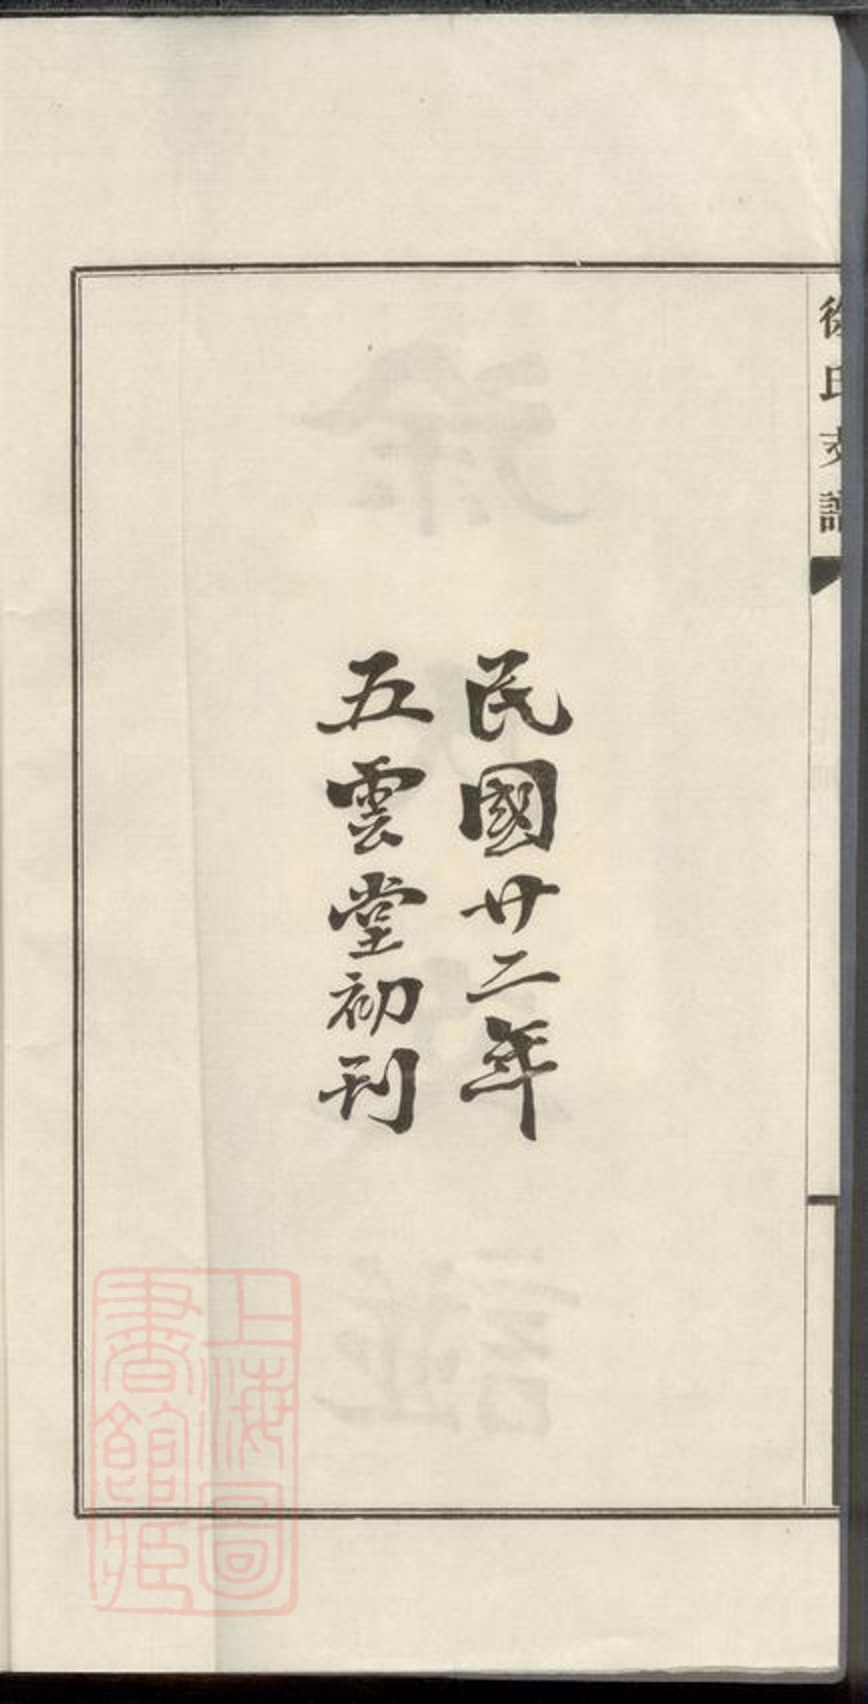 徐氏支譜
民國廿二年
五雲堂初刊
上海圖
書館藏